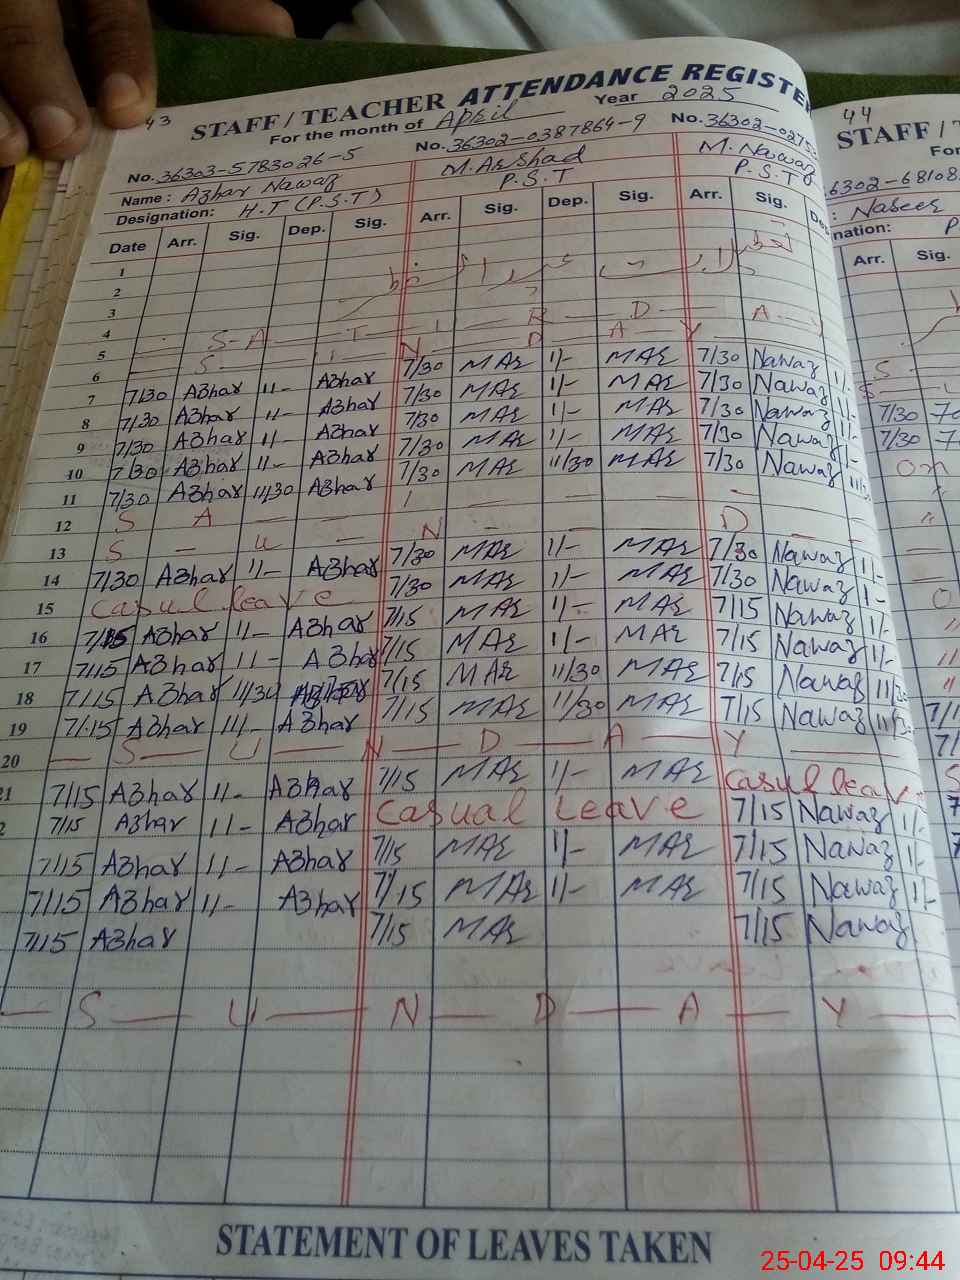 43
STAFF / TEACHER ATTENDANCE REGISTE
For the month of April Year 2025
No. 36303-5783026-5 No. 36302-0387864-9 No. 36302-0275
Name: Azhar Nawaz M. Arshad M. Nawaz
Designation: H.T (P.S.T) P.S.T P.S.T
Date Arr. Sig. Dep. Sig. Arr. Sig. Dep. Sig. Arr. Sig. Dep
1
2
3
4 S-A T R D A Y
5 S N D A Y
6 7/30 MAr 1/- MAr 7/30 Nawaz 1/-
7 7/30 Azhar 11- Azhar 7/30 MAr 1/- MAr 7/30 Nawaz 1/-
8 7/30 Azhar 11- Azhar 7/30 MAr 1/- MAr 7/30 Nawaz 11-
9 7/30 Azhar 11- Azhar 7/30 MAr 1/- MAr 7/30 Nawaz 1/-
10 7/30 Azhar 11- Azhar 7/30 MAr 11/30 MAr 7/30 Nawaz 11/3
11 7/30 Azhar 11/30 Azhar
12 S A N D
13 S - U - 7/30 MAr 1/- MAr 7/30 Nawaz 1/-
14 7/30 Azhar 11- Azhar 7/30 MAr 1/- MAr 7/30 Nawaz 1-
15 casul leave 7/15 MAr 1/- MAr 7/15 Nawaz 1/-
16 7/15 Azhar 11- Azhar 7/15 MAr 1/- MAr 7/15 Nawaz 1/-
17 7/15 Azhar 11- Azhar 7/15 MAr 11/30 MAr 7/15 Nawaz 11/30
18 7/15 Azhar 11/30 7/15 MAr 11/30 MAr 7/15 Nawaz 11/30
19 7/15 Azhar 11/- Azhar
20 S U N D A Y
21 7/15 Azhar 11- Azhar 7/15 MAr 1/- MAr Casul leave
2 7/15 Azhar 11- Azhar Casual leave 7/15 Nawaz 1/-
7/15 Azhar 11- Azhar 7/15 MAr 1/- MAr 7/15 Nawaz 1/-
7/15 Azhar 11- Azhar 7/15 MAr 1/- MAr 7/15 Nawaz 1/-
7/15 Azhar 7/15 MAr 7/15 Nawaz
S U N D A Y
STATEMENT OF LEAVES TAKEN
44
STAFF / T
For
6302-68108
: Nabeer
nation: P
Arr. Sig.
S
7/30
7/30
on
25-04-25 09:44